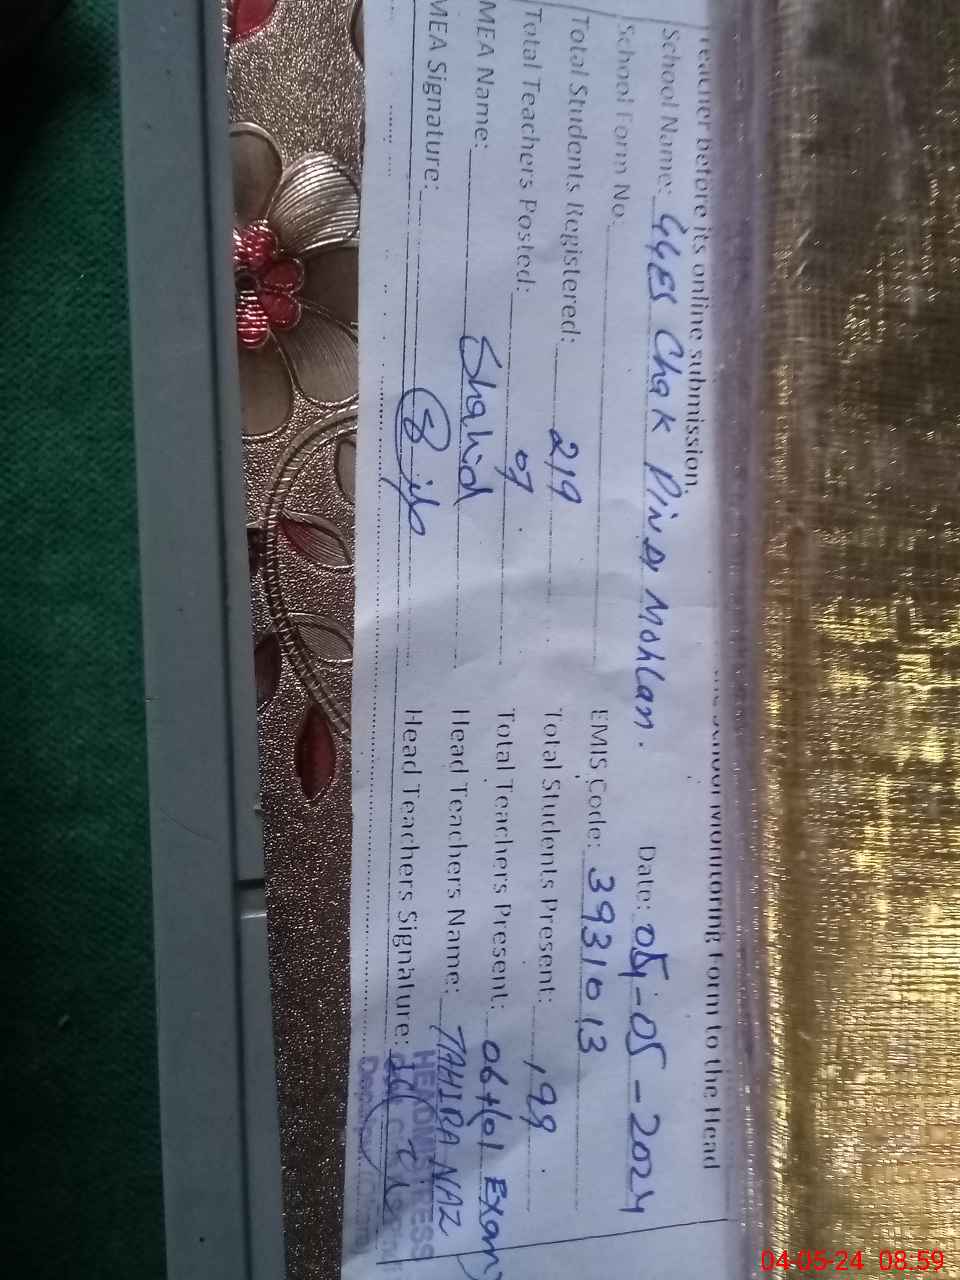 School Monitoring Form to the Head
Teacher before its online submission.
School Name: GGES Chak Pindi Mohlan. Date: 04-05-2024
School Form No. EMIS Code: 3931013
Total Students Registered: 219 Total Students Present: 198
Total Teachers Posted: 07 Total Teachers Present: 06+(01 Exam)
MEA Name: Shahid Head Teachers Name: TAHIRA NAZ
MEA Signature: Head Teachers Signature:
HEADMISTRESS
04-05-24 08:59